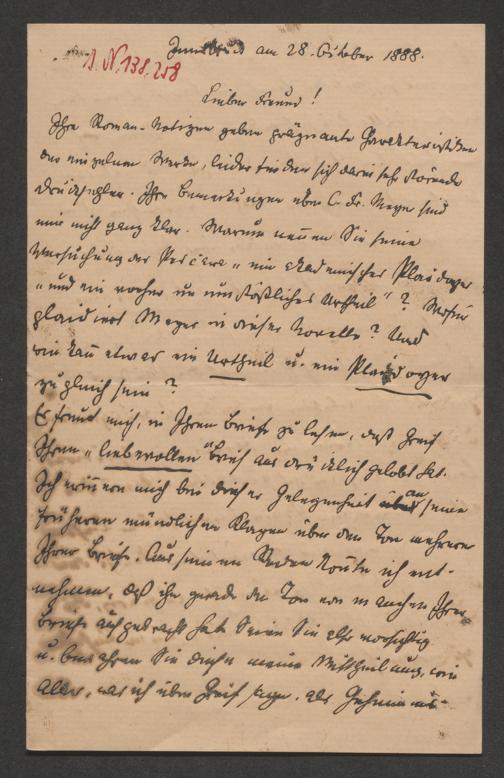 Innsbruck am 28. October 1888.
J. N. 138.258
Lieber Freund!
Ihre Roman-Notizen geben prägnante Charakteristiken
der einzelnen Werke, leider finden sich darin sehr störende
Druckfehler. Ihre Bemerkungen über C. F. Meyer sind
mir nicht ganz klar. Warum nennen Sie seine
Versuchung des Pescara „ein akademisches Plaidoyer
„und ein vorher unumstößliches Urtheil"? Wofür
plaidiert Meyer in dieser Novelle? Und
wie kann etwas ein Urtheil u. ein Plaidoyer
zugleich sein?
Es freut mich, in Ihrem Briefe zu lesen, daß Greif
Ihren „liebevollen" Brief ausdrücklich gelobt hat.
Ich erinnere mich bei dieser Gelegenheit an seine
früheren mündlichen Klagen über den Ton mehrerer
Ihrer Briefe. Aus seinen Reden konnte ich ent-
nehmen, daß ihn gerade der Ton von manchen Ihrer
Briefe aufgebracht hat. Seien Sie also vorsichtig
u. bewahren Sie diese meine Mittheilung, wie
alles, was ich über Greif sage, als Geheimnis.